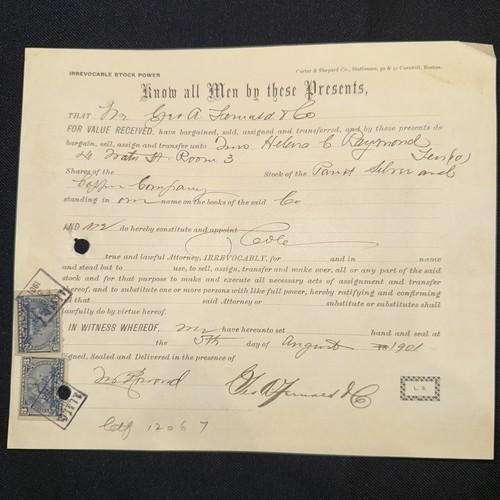 IRREVOCABLE STOCK POWER
Carter & Shepard Co., Stationers, Cornhill, Boston.
Know all Men by these Presents,
THAT We Geo A Fernald & Co
FOR VALUE RECEIVED, have bargained, sold, assigned and transferred, and by these presents do
bargain, sell, assign and transfer unto Mrs. Helena C Raymond
Water St Room 3
Shares of the Stock of the Parrot Silver and
Copper Company
standing in our name on the books of the said Co
AND we do hereby constitute and appoint
true and lawful Attorney, IRREVOCABLY, for and in name
and stead but to use, to sell, assign, transfer and make over, all or any part of the said
stock and for that purpose to make and execute all necessary acts of assignment and transfer
thereof, and to substitute one or more persons with like full power, hereby ratifying and confirming
all that said Attorney or substitute or substitutes shall
lawfully do by virtue hereof.
IN WITNESS WHEREOF, we have hereunto set hand and seal at
the 5th day of August 1901
Signed, Sealed and Delivered in the presence of
Geo A Fernald & Co
L. S.
Ctf 12067